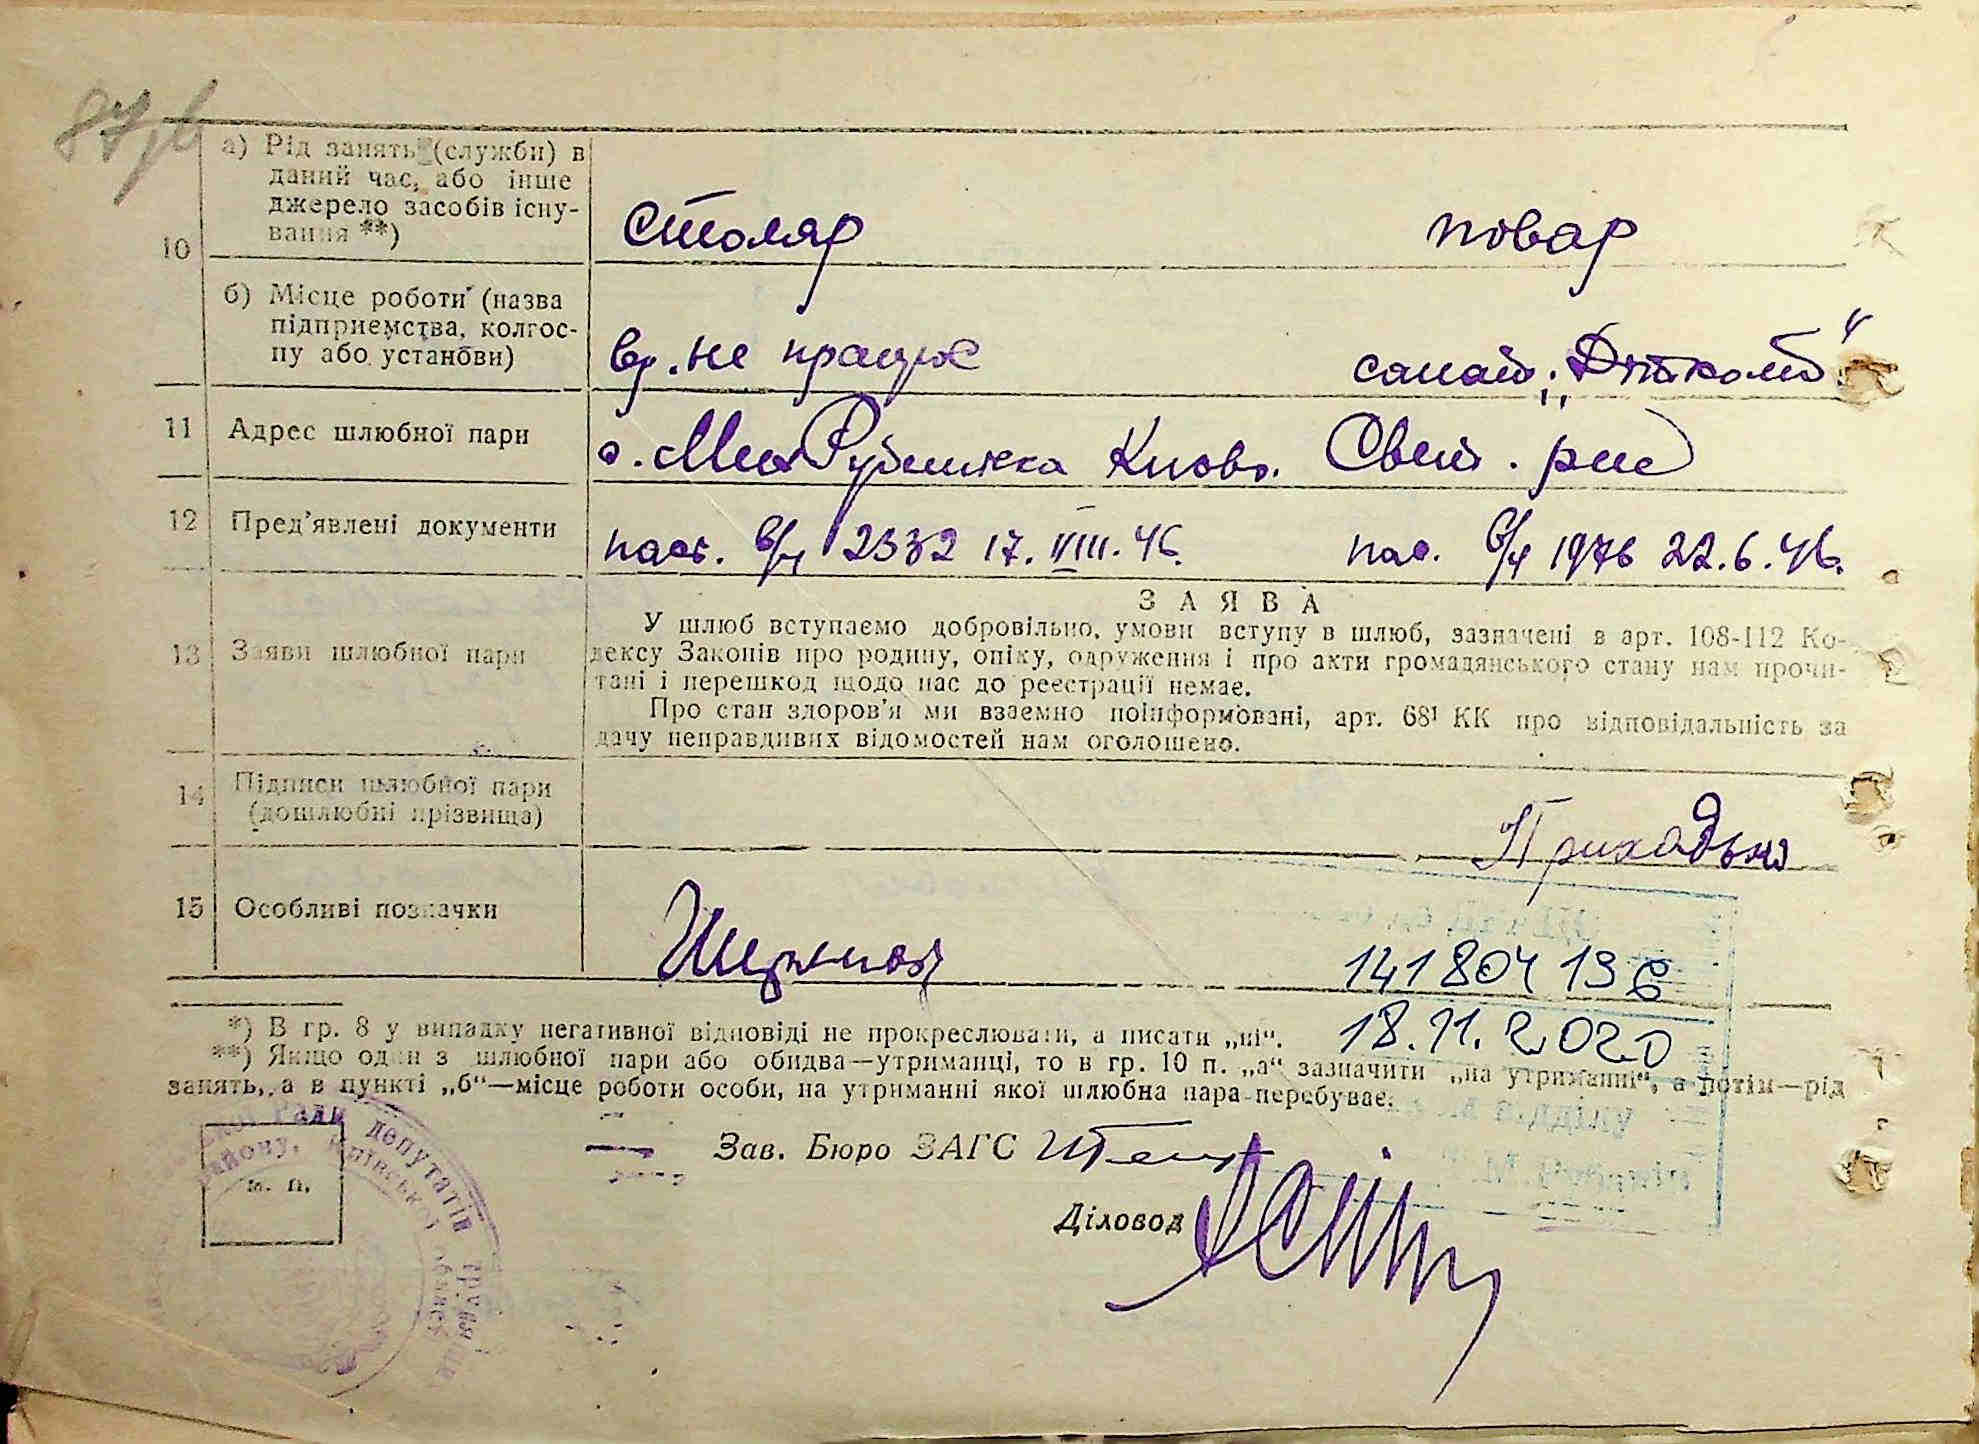 а) Рід занять (служби) в
даний час, або інше
джерело засобів існу-
вання **)
10
столяр
повар
б) Місце роботи (назва
підприємства, колгос-
пу або установи)
вр. не працює
санат.
11
Адрес шлюбної пари
с. Мих Рубежівка Києво. Свят. р-н
12
Пред'явлені документи
пасп. б/н 2332 17.VIII.46.
пас. б/н 1976 22.6.46.
З А Я В А
13
Заяви шлюбної пари
У шлюб вступаємо добровільно, умови вступу в шлюб, зазначені в арт. 108-112 Ко-
дексу Законів про родину, опіку, одруження і про акти громадянського стану нам прочи-
тані і перешкод щодо нас до реєстрації немає.
Про стан здоров'я ми взаємно поінформовані, арт. 68¹ КК про відповідальність за
дачу неправдивих відомостей нам оголошено.
14
Підписи шлюбної пари
(дошлюбні прізвища)
15
Особливі позначки
141804 19
18.11.2020
*) В гр. 8 у випадку негативної відповіді не прокреслювати, а писати „ні“.
**) Якщо один з шлюбної пари або обидва—утриманці, то в гр. 10 п. „а“ зазначити „на утриманні“, а потім—рід
занять, а в пункті „б“—місце роботи особи, на утриманні якої шлюбна пара перебуває.
Зав. Бюро ЗАГС
м. п.
Діловод
Ради депутатів
району, Київської